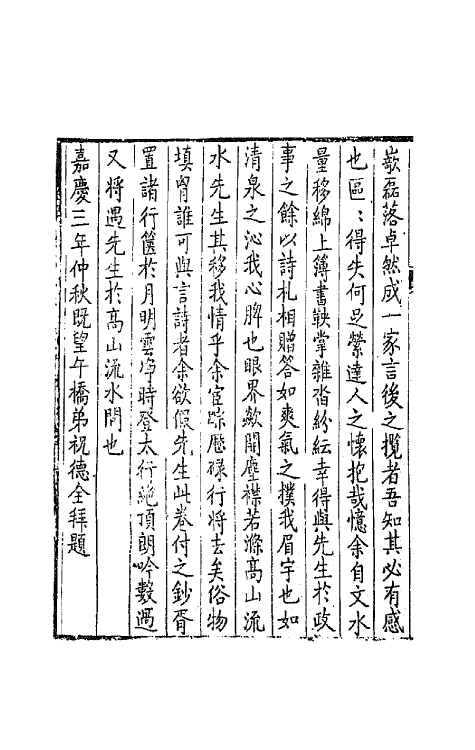 嶔磊落卓然成一家言後之攬者吾知其必有感
也區〻得失何足縈達人之懷抱哉憶余自文水
量移綿上簿書鞅掌雜沓紛紜幸得與先生於政
事之餘以詩札相贈答如爽氣之撲我眉宇也如
清泉之沁我心脾也眼界歘開塵襟若滌高山流
水先生其移我情乎余宦踪歷碌行將去矣俗物
填胷誰可與言詩者余欲假先生此卷付之鈔胥
置諸行篋於月明雲净時登太行絶頂朗吟數過
又將遇先生於高山流水間也
嘉慶三年仲秋既望午橋弟祝德全拜題